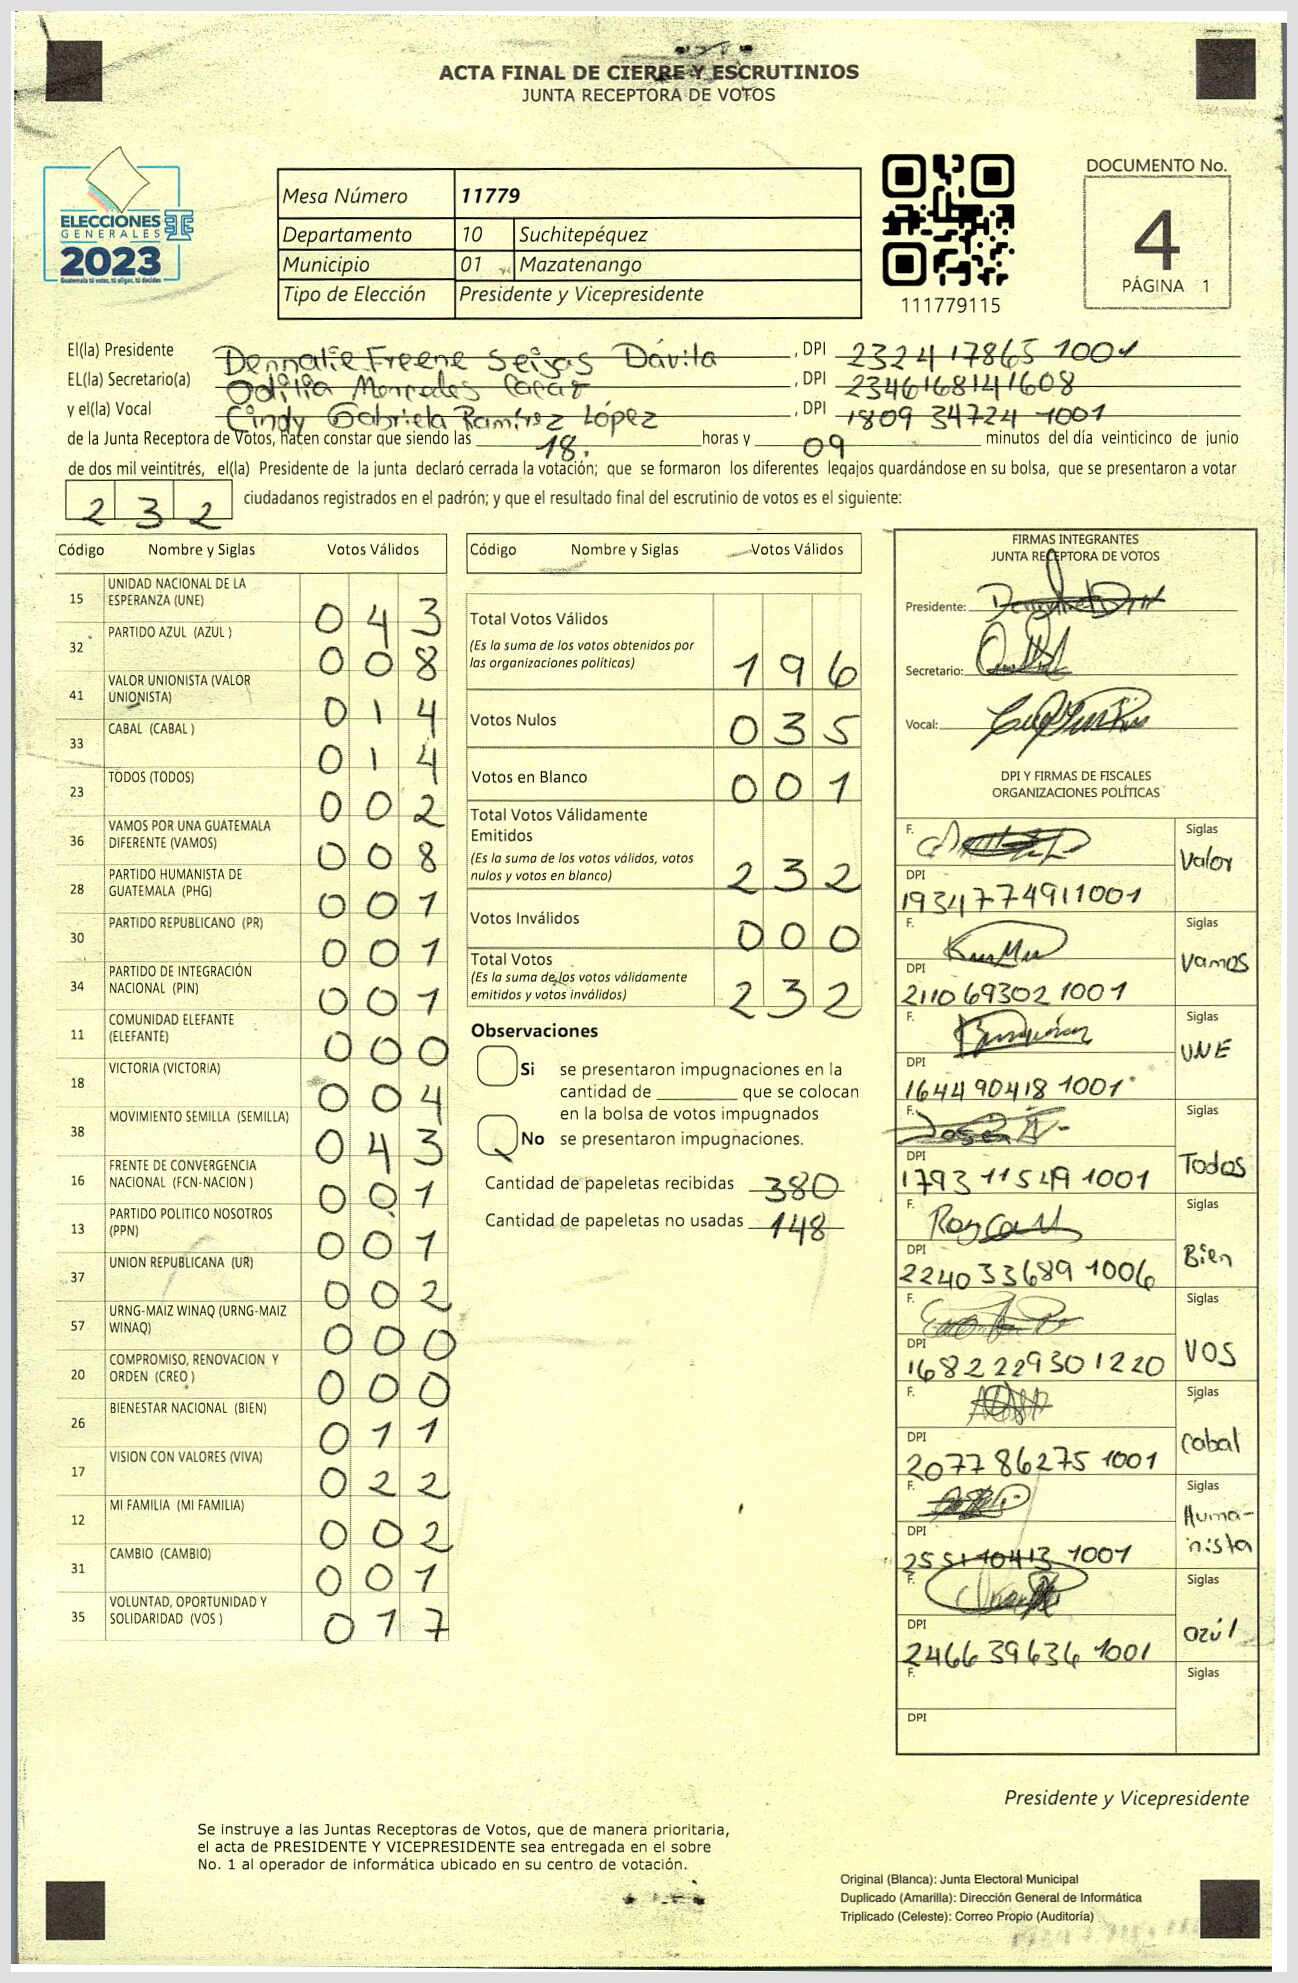 ACTA FINAL DE CIERRE Y ESCRUTINIOS
JUNTA RECEPTORA DE VOTOS
ELECCIONES
GENERALES
2023
Guatemala tú votas, tú eliges, tú decides
Mesa Número 11779
Departamento 10 Suchitepéquez
Municipio 01 Mazatenango
Tipo de Elección Presidente y Vicepresidente
111779115
DOCUMENTO No.
4
PÁGINA 1
El(la) Presidente Dennalie Freene Seijas Dávila, DPI 2324 17865 1001
EL(la) Secretario(a) Odilia Mercedes, DPI 2346168141608
y el(la) Vocal Cindy Gabriela Ramírez López, DPI 1809 34724 1001
de la Junta Receptora de Votos, hacen constar que siendo las 18. horas y 09 minutos del día veinticinco de junio
de dos mil veintitrés, el(la) Presidente de la junta declaró cerrada la votación; que se formaron los diferentes legajos guardándose en su bolsa, que se presentaron a votar
232 ciudadanos registrados en el padrón; y que el resultado final del escrutinio de votos es el siguiente:
Código Nombre y Siglas Votos Válidos
15 UNIDAD NACIONAL DE LA ESPERANZA (UNE) 043
32 PARTIDO AZUL (AZUL ) 008
41 VALOR UNIONISTA (VALOR UNIONISTA) 014
33 CABAL (CABAL ) 014
23 TODOS (TODOS) 002
36 VAMOS POR UNA GUATEMALA DIFERENTE (VAMOS) 008
28 PARTIDO HUMANISTA DE GUATEMALA (PHG) 001
30 PARTIDO REPUBLICANO (PR) 001
34 PARTIDO DE INTEGRACIÓN NACIONAL (PIN) 001
11 COMUNIDAD ELEFANTE (ELEFANTE) 000
18 VICTORIA (VICTORIA) 004
38 MOVIMIENTO SEMILLA (SEMILLA) 043
16 FRENTE DE CONVERGENCIA NACIONAL (FCN-NACION ) 001
13 PARTIDO POLITICO NOSOTROS (PPN) 001
37 UNION REPUBLICANA (UR) 002
57 URNG-MAIZ WINAQ (URNG-MAIZ WINAQ) 000
20 COMPROMISO, RENOVACION Y ORDEN (CREO ) 000
26 BIENESTAR NACIONAL (BIEN) 011
17 VISION CON VALORES (VIVA) 022
12 MI FAMILIA (MI FAMILIA) 002
31 CAMBIO (CAMBIO) 001
35 VOLUNTAD, OPORTUNIDAD Y SOLIDARIDAD (VOS ) 017
Código Nombre y Siglas Votos Válidos
Total Votos Válidos
(Es la suma de los votos obtenidos por
las organizaciones políticas) 196
Votos Nulos 035
Votos en Blanco 001
Total Votos Válidamente
Emitidos
(Es la suma de los votos válidos, votos
nulos y votos en blanco) 232
Votos Inválidos 000
Total Votos
(Es la suma de los votos válidamente
emitidos y votos inválidos) 232
Observaciones
Si se presentaron impugnaciones en la
cantidad de ________ que se colocan
en la bolsa de votos impugnados
No se presentaron impugnaciones.
Cantidad de papeletas recibidas 380
Cantidad de papeletas no usadas 148
FIRMAS INTEGRANTES
JUNTA RECEPTORA DE VOTOS
Presidente:
Secretario:
Vocal:
DPI Y FIRMAS DE FISCALES
ORGANIZACIONES POLÍTICAS
F. Siglas
Valor
DPI
1934777491 1001
F. Siglas
Vamos
DPI
21106 9302 1001
F. Siglas
UNE
DPI
1644 90418 1001
F. Siglas
Todos
DPI
1793 11549 1001
F. Siglas
Bien
DPI
2240 33689 1006
F. Siglas
VOS
DPI
1682 22930 1220
F. Siglas
Cabal
DPI
2077 86275 1001
F. Siglas
Humanista
DPI
2551 10413 1001
F. Siglas
azúl
DPI
2466 39636 1001
F. Siglas
DPI
Presidente y Vicepresidente
Se instruye a las Juntas Receptoras de Votos, que de manera prioritaria,
el acta de PRESIDENTE Y VICEPRESIDENTE sea entregada en el sobre
No. 1 al operador de informática ubicado en su centro de votación.
Original (Blanca): Junta Electoral Municipal
Duplicado (Amarilla): Dirección General de Informática
Triplicado (Celeste): Correo Propio (Auditoría)